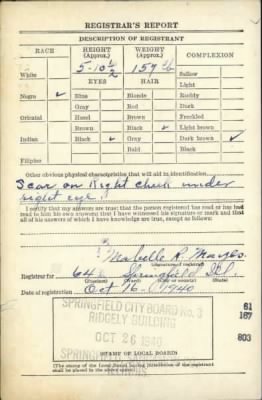 REGISTRAR'S REPORT
DESCRIPTION OF REGISTRANT
RACE HEIGHT (Approx.) WEIGHT (Approx.) COMPLEXION
5-10 1/2 157
White EYES HAIR Sallow
Light
Negro ✓ Blue Blonde Ruddy
Gray Red Dark
Oriental Hazel Brown Freckled
Brown Black ✓ Light brown
Indian Black ✓ Gray Dark brown ✓
Bald Black
Filipino
Other obvious physical characteristics that will aid in identification
Scar on Right cheek under
right eye.
I certify that my answers are true; that the person registered has read or has had
read to him his own answers; that I have witnessed his signature or mark and that
all of his answers of which I have knowledge are true, except as follows:
Mabelle R.
(Signature of registrar)
Registrar for 64 Springfield Ill.
(Precinct) (Ward) (City or county) (State)
Date of registration Oct 16 1940
SPRINGFIELD CITY BOARD No. 3
RIDGELY BUILDING
OCT 26 1940
SPRINGFIELD
(STAMP OF LOCAL BOARD)
61
167
803
(The stamp of the Local Board having jurisdiction of the registrant
shall be placed in the above space.)